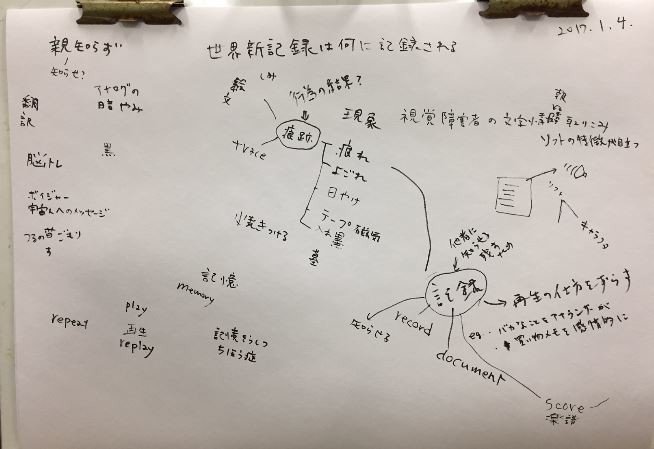 2017.1.4.
親知らず
知らせ?
世界新記録は何に記録される
アナログの
暗やみ
翻
訳
黒
脳トレ
ボイジャー
宇宙人へのメッセージ
つるの
repeat
play
再生
replay
記憶
memory
縄
文
しみ
行為の結果?
痕跡
trace
疲れ
よごれ
日やけ
テープ
入れ墨
墓
焼きつける
現象
視覚障害者の文字
ソフトの特徴
ソフト
他者に
知らせる
残す
ため
記録
知らせる
record
document
再生の仕方をずらす
eg. バカなことをアナウンサーが
・買い物メモを感情的に
score
楽譜